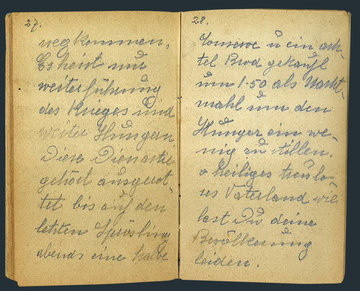 27.
weg kommen.
Es heist nur
weiterführung
des Krieges und
weiter Hungern
Diese
gehört ausgerot
tet bis auf den
letzten
abends eine halbe
28.
u ein ach
tel Brod gekauft
um 1.50 als Nacht
mahl um den
Hunger ein we
nig zu stillen.
o heiliges treulo
ses Vaterland wie
last Du deine
Bevölkerung
leiden.